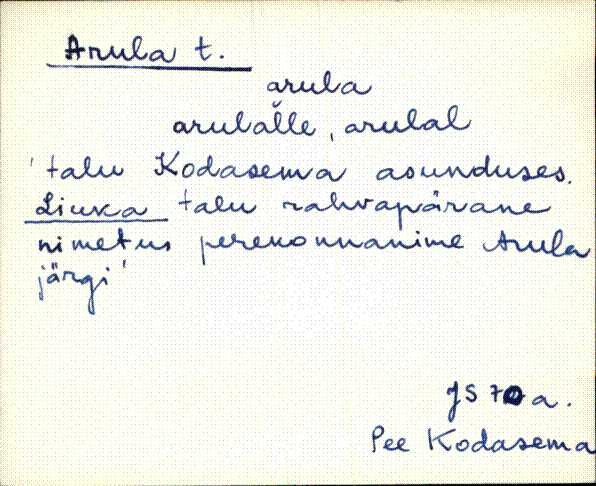 Arula t.
arula
arulălle, arulal
'talu Kodasema asunduses.
Liuka talu rahvapärane
nimetus perekonnanime Arula
järgi'
JS 70 a.
Pee Kodasema